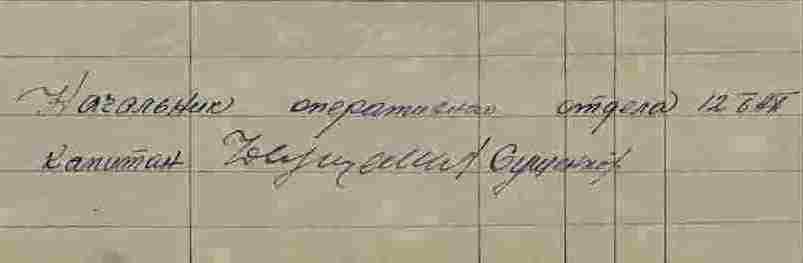 Начальник оперативного отдела 12
капитан Сущенко